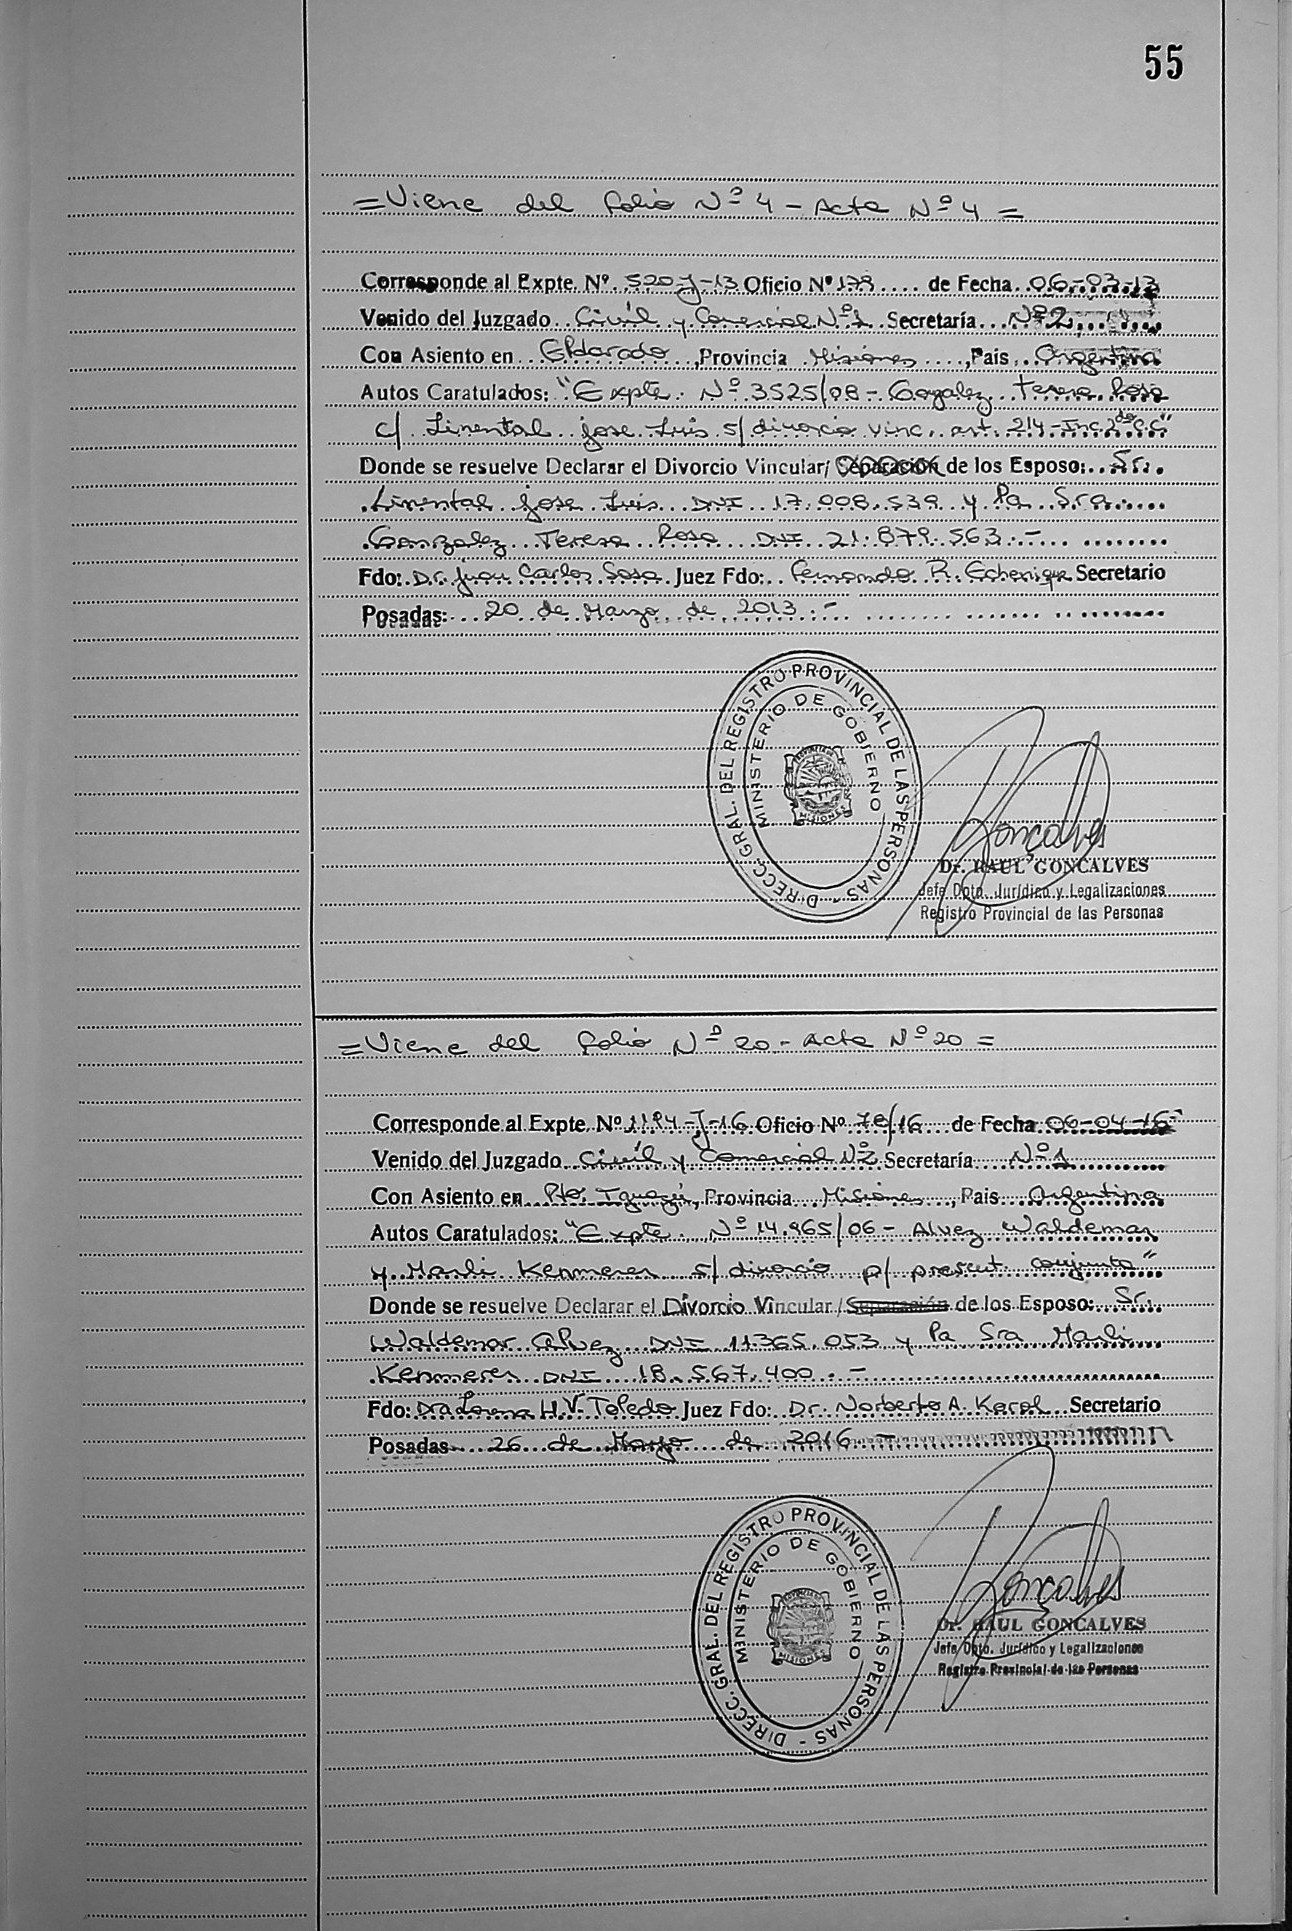 55
=Viene del folio Nº 4 - Acta Nº 4 =
Corresponde al Expte. Nº 520 J-13 Oficio Nº 179 de Fecha 06-03-13
Venido del Juzgado Civil y Comercial Nº 1 Secretaría Nº 2
Con Asiento en Eldorado, Provincia Misiones, País Argentina
Autos Caratulados: "Expte. Nº 3525/08 - Gogalez Teresa Rosa
c/ Limental Jose Luis s/ divorcio vinc. art. 214 - Inc 2do C.C"
Donde se resuelve Declarar el Divorcio Vincular/ Separación de los Esposo: Sr.
Limental Jose Luis DNI 17.008.539 y la Sra.
Gonzalez Teresa Rosa DNI 21.879.563.-
Fdo: Dr. Juan Carlos Sosa Juez Fdo: Fernando R. Echenique Secretario
Posadas: 20 de Marzo de 2013.-
DIRECC. GRAL. DEL REGISTRO PROVINCIAL DE LAS PERSONAS -
MINISTERIO DE GOBIERNO
MISIONES
Goncalves
Dr. RAUL GONCALVES
Jefe Dpto. Jurídico y Legalizaciones
Registro Provincial de las Personas
=Viene del folio Nº 20 - Acta Nº 20 =
Corresponde al Expte. Nº 1194-J-16 Oficio Nº 78/16 de Fecha 06-04-16
Venido del Juzgado Civil y Comercial Nº 2 Secretaría Nº 1
Con Asiento en Pto. Iguazú, Provincia Misiones, País Argentina
Autos Caratulados: "Expte. Nº 14.965/06 - Alvez Waldemar
y Marli Kenmeres s/ divorcio p/ present. conjunta"
Donde se resuelve Declarar el Divorcio Vincular/ Separación de los Esposo: Sr.
Waldemar Alvez DNI 11.365.053 y la Sra Marli
Kenmeres DNI 18.567.400.-
Fdo: Dra Lorena H.V. Toledo Juez Fdo: Dr. Norberto A. Karol Secretario
Posadas 26 de Marzo de 2016 -
DIRECC. GRAL. DEL REGISTRO PROVINCIAL DE LAS PERSONAS -
MINISTERIO DE GOBIERNO
MISIONES
Goncalves
Dr. RAUL GONCALVES
Jefe Dpto. Jurídico y Legalizaciones
Registro Provincial de las Personas